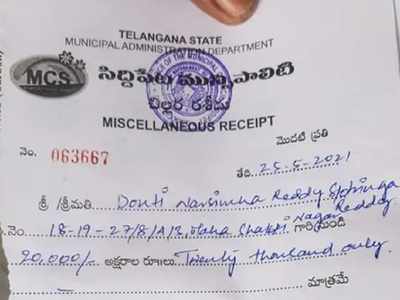 TELANGANA STATE
MUNICIPAL ADMINISTRATION DEPARTMENT
MCS
సిద్దిపేట మున్సిపాలిటి
చిల్లర రశీదు
MISCELLANEOUS RECEIPT
మొదటి ప్రతి
నెం. 063667
తేది. 25-5-2021
శ్రీ /శ్రీమతి Donti Narsimha Reddy
Nagar Reddy
నెం. 18-19-27/8/A13, Shakti గారి నుండి
20,000/- అక్షరాల రూ॥లు. Twenty thousand only
మాత్రమే